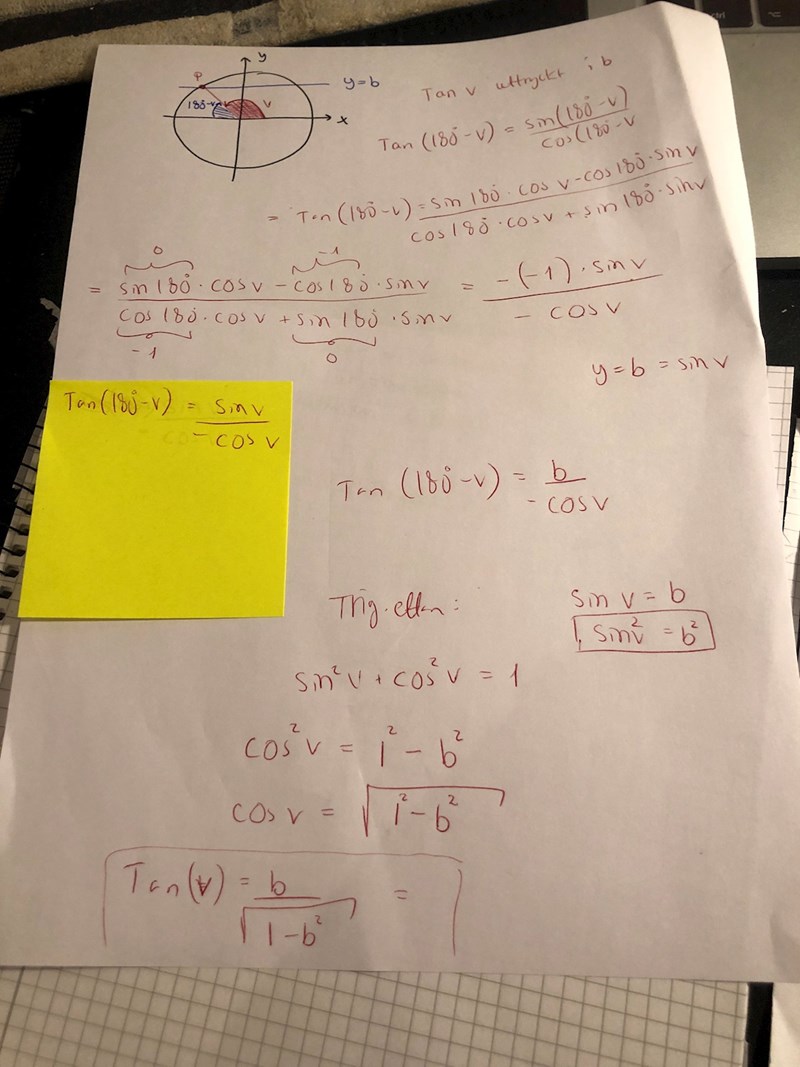 y
P
y=b
180°-v
v
x
Tan v uttryckt i b
Tan (180°-v) = sin(180°-v) / cos(180°-v
= Tan (180°-v) = sin 180° · cos v - cos 180° · sin v / cos 180° · cos v + sin 180° · sin v
0 -1
= sin 180° · cos v - cos 180° · sin v / cos 180° · cos v + sin 180° · sin v = -(-1) · sin v / - cos v
-1 0
y = b = sin v
Tan(180°-v) = sin v / - cos v
Tan (180°-v) = b / - cos v
Trig. ettan:
sin v = b
sin²v = b²
sin²v + cos²v = 1
cos²v = 1² - b²
cos v = √1² - b²
Tan(v) = b / √1-b² =
ctrl